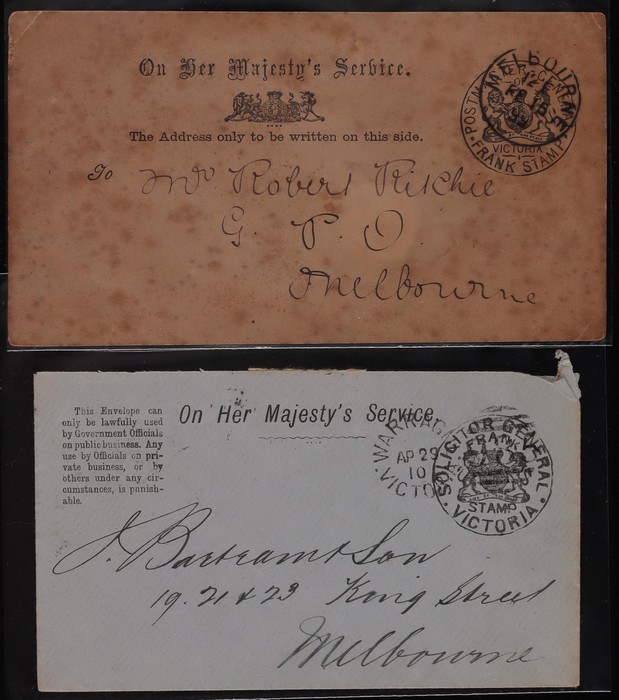 On Her Majesty's Service.
The Address only to be written on this side.
To Mr Robert Ritchie
G. P. O.
Melbourne
MELBOURNE
VICTORIA
FRANK STAMP
This Envelope can
only be lawfully used
by Government Officials
on public business. Any
use by Officials on pri-
vate business, or by
others under any cir-
cumstances, is punish-
able.
On Her Majesty's Service
AP 29
10
SOLICITOR GENERAL
FRANK
STAMP
VICTORIA
J. Bartram & Son
19. 21 & 23 King Street
Melbourne